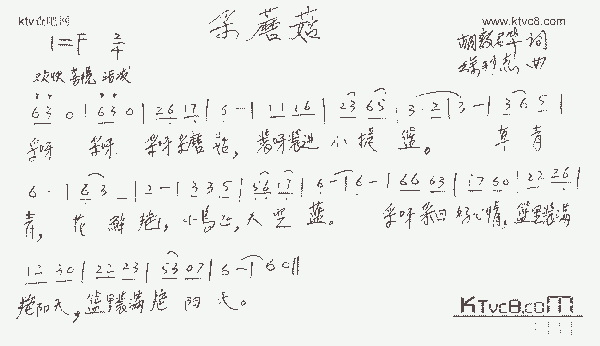 ktv谷吧网
采蘑菇
www.ktvc8.com
1=F 2/4
胡敦骅 词
曲
欢快 喜悦 活泼
6 3 0 | 6 3 0 | 2 6 1 7 | 6 - | 1 1 1 6 | 2 3 6 5 | 3 · 2 | 3 - | 3 6 5 |
采呀 采呀 采呀采蘑菇, 装呀装进小提篮。 草青
6 · | 6 3 _ | 2 - | 3 3 5 | 5 6 1 7 | 6 - | 6 - | 6 6 6 3 | 1 7 6 0 | 2 2 2 6 |
青, 花鲜艳, 小鸟飞, 天空蓝。 采呀采回好心情, 篮里装满
1 2 3 0 | 2 2 2 3 | 5 3 0 7 | 6 - | 6 0 ||
艳阳天, 篮里装满艳阳天。
KTvc8.com